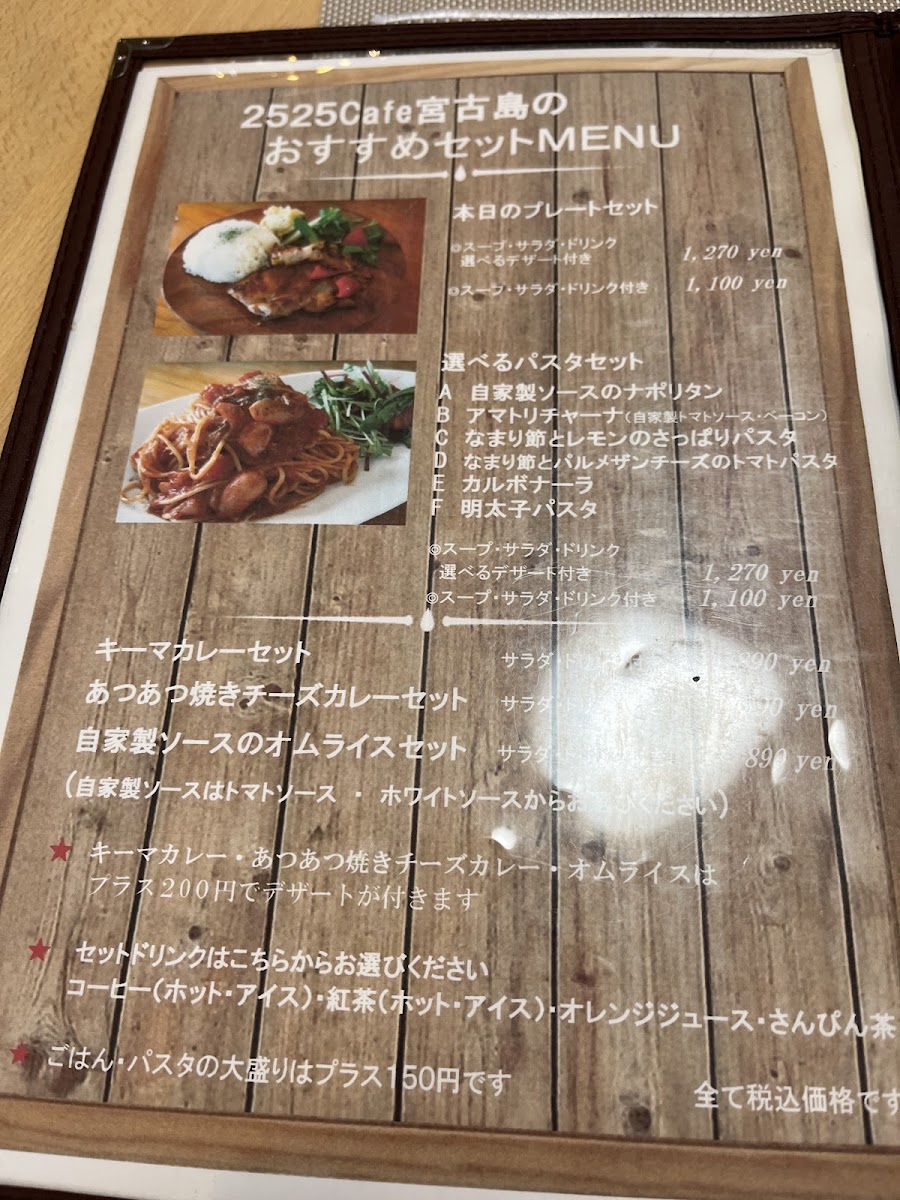 2525Cafe宮古島の
おすすめセットMENU
本日のプレートセット
◎スープ・サラダ・ドリンク
選べるデザート付き 1,270 yen
◎スープ・サラダ・ドリンク付き 1,100 yen
選べるパスタセット
A 自家製ソースのナポリタン
B アマトリチャーナ(自家製トマトソース・ベーコン)
C なまり節とレモンのさっぱりパスタ
D なまり節とパルメザンチーズのトマトパスタ
E カルボナーラ
F 明太子パスタ
◎スープ・サラダ・ドリンク
選べるデザート付き 1,270 yen
◎スープ・サラダ・ドリンク付き 1,100 yen
キーマカレーセット サラダ・ yen
あつあつ焼きチーズカレーセット サラダ・ yen
自家製ソースのオムライスセット サラダ・ 890 yen
(自家製ソースはトマトソース ・ ホワイトソースからお選びください)
★ キーマカレー・あつあつ焼きチーズカレー・オムライスは
プラス200円でデザートが付きます
★ セットドリンクはこちらからお選びください
コーヒー(ホット・アイス)・紅茶(ホット・アイス)・オレンジジュース・さんぴん茶
★ ごはん・パスタの大盛りはプラス150円です
全て税込価格です